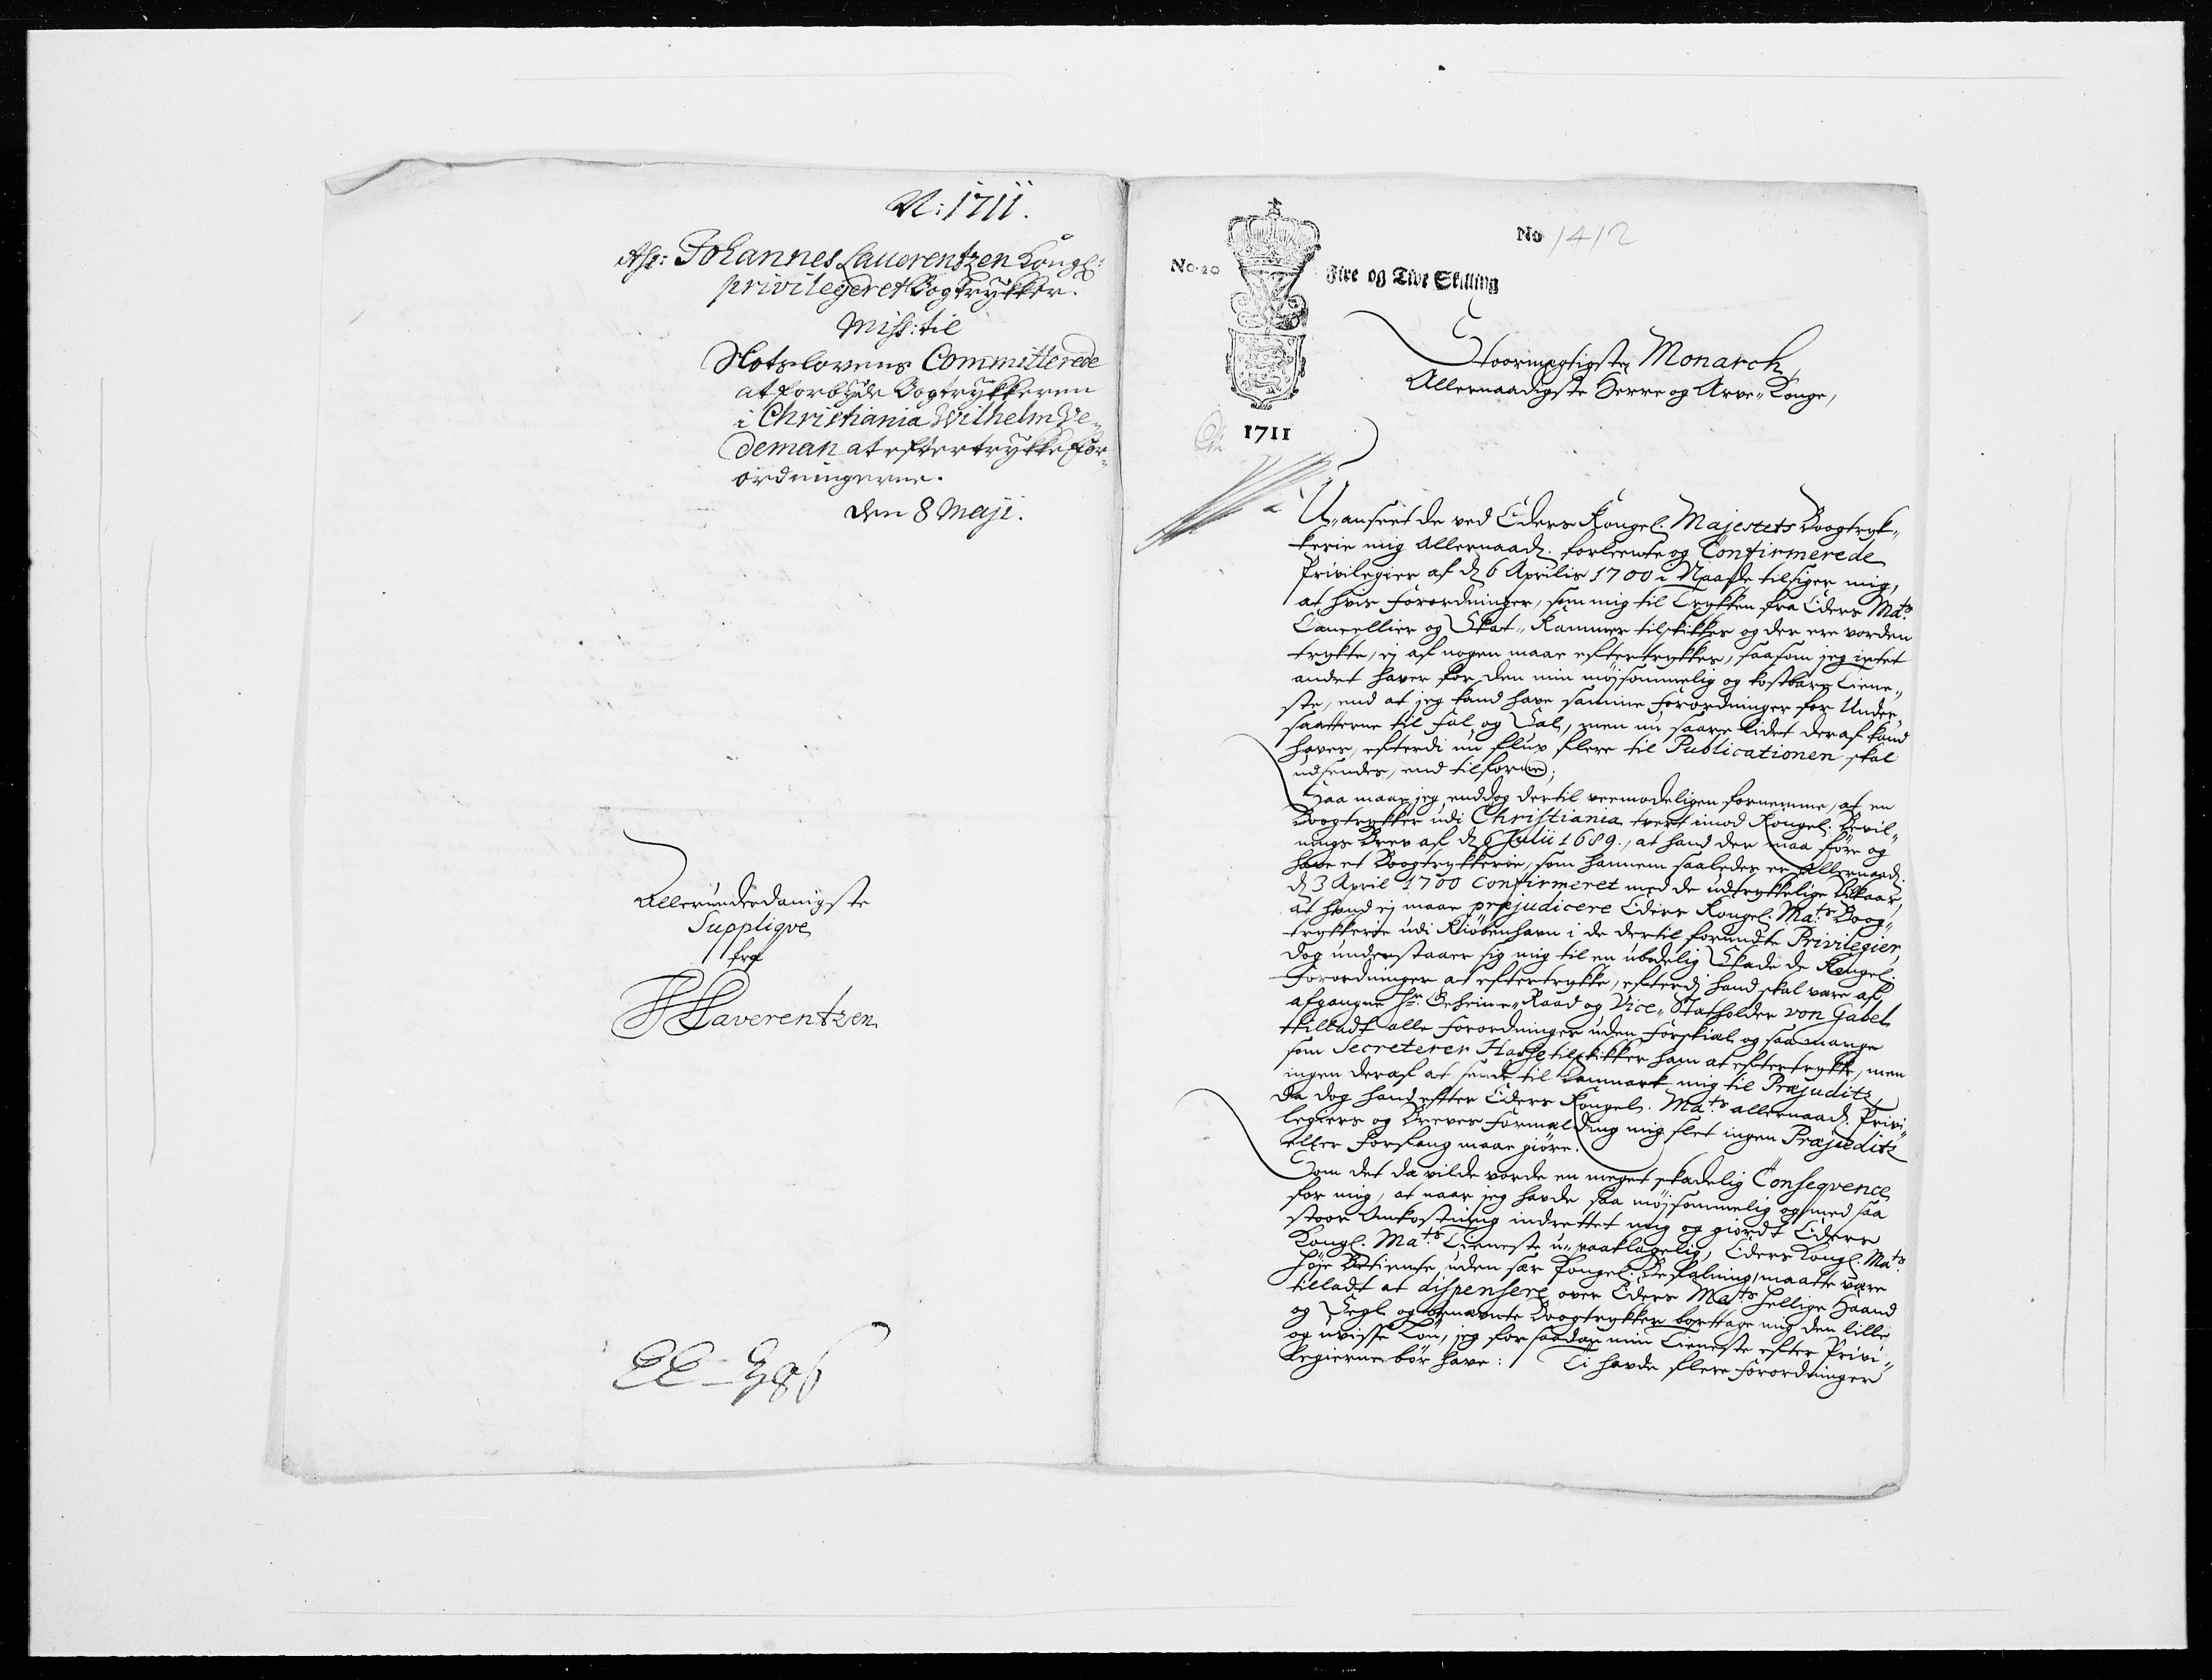 A: 1711.
Ass: Johannes Lauerentzen Kongl:
privilegeret Bogtrykker.
Miss: til
Slotslovens Committerede
at forbyde Bogtrykkeren
i Christiania Wilhelm We-
deman at eftertrykke for-
ordningerne.
den 8 Maji.
Allerunderdanigste
Suppliqve
fra
JLaverentzen
No 1412
No. 20
Fire og Tive Skilling
1711
Stoormegtigste Monarch,
Allernaadigste Herre og Arve-Konge,
U-anseet de ved Eders Kongel. Majestets Boogtryk-
kerie mig Allernaad. forleente og Confirmerede
Privilegier af d 6 Aprilis 1700 i Naade tilsiger mig,
at hvis forordninger, som mig til Trykken fra Eders Mats
Cancellier og Skat-Kammer tilskikkes og der ere vorden
trykte, ej af nogen maae eftertrykkes, saasom jeg intet
andet haver for den min møjsommelig og kostbare Tiene-
ste, end at jeg kand have samme forordninger for Under-
saatterne til fal og Sal, men nu saare lidet deraf kand
haves, efterdi nu flux flere til Publicationen skal
udsendes, end tilforne;
Saa maae jeg enddog dertil veemodeligen fornemme, at en
Boogtrykker udi Christiania tvert imod Kongel. Bevil-
nings Brev af d 6 Julii 1689., at hand der maa føre og
have et Boogtrykkerie, som hannem saaledes er Allernaad.
d 3 April 1700 confirmeret med de udtrykkelige Vilkaar,
at hand ej maae præjudicere Eders Kongel. Mats Boog-
trykkerie udi Kiöbenhavn i de dertil forundte Privilegier,
dog understaaer sig mig til en ubodelig Skade de Kongel.
Forordninger at eftertrykke, efterdj hand skal være af
afgangne Hr. Geheime-Raad og Vice-Statholder von Gabel
tilladt alle forordninger uden forskiæl og saa mange
som Secreterer Hasse tilskikker ham at eftertrykke, men
ingen deraf at sende til Danmark mig til Præjuditz,
da dog hand efter Eders Kongel. Mats allernaad. Privi-
legiers og Breves Formælding mig slet ingen Præjuditz
eller forfang maae giøre.
Som det da vilde vorde en meget skadelig Conseqvence
for mig, at naar jeg havde saa møjsommelig og med saa
stoor Omkostning indrettet mig og giordt Eders
Kongl. Mats Tieneste u-paaklagelig, Eders Kongl. Mats
høje Betiente, uden sær Kongel. Befalning, maatte være
tilladt at dispensere over Eders Mats hellige Haand
og Segl og benævnte Boogtrykker borttage mig den lille
og uvisse Løn, jeg for saadan min Tieneste efter Privi-
legierne bör have: Ti havde flere forordninger